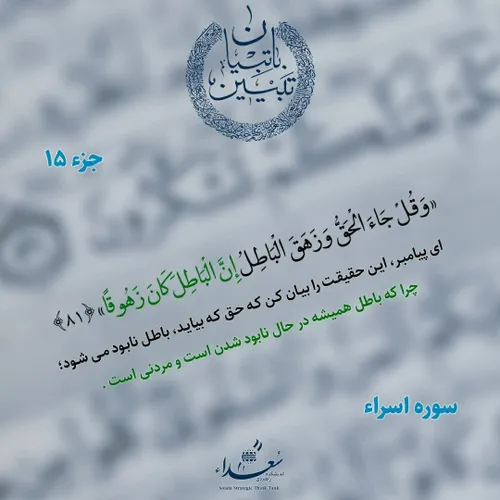 تبیین
با تبیان
جزء ۱۵
«وَقُلْ جَاءَ الْحَقُّ وَزَهَقَ الْبَاطِلُ إِنَّ الْبَاطِلَ كَانَ زَهُوقًا» ﴿۸۱﴾
ای پیامبر، این حقیقت را بیان کن که حق که بیاید، باطل نابود می شود؛
چرا که باطل همیشه در حال نابود شدن است و مردنی است .
سوره اسراء
سُعداء
Soada Strategic Think Tank